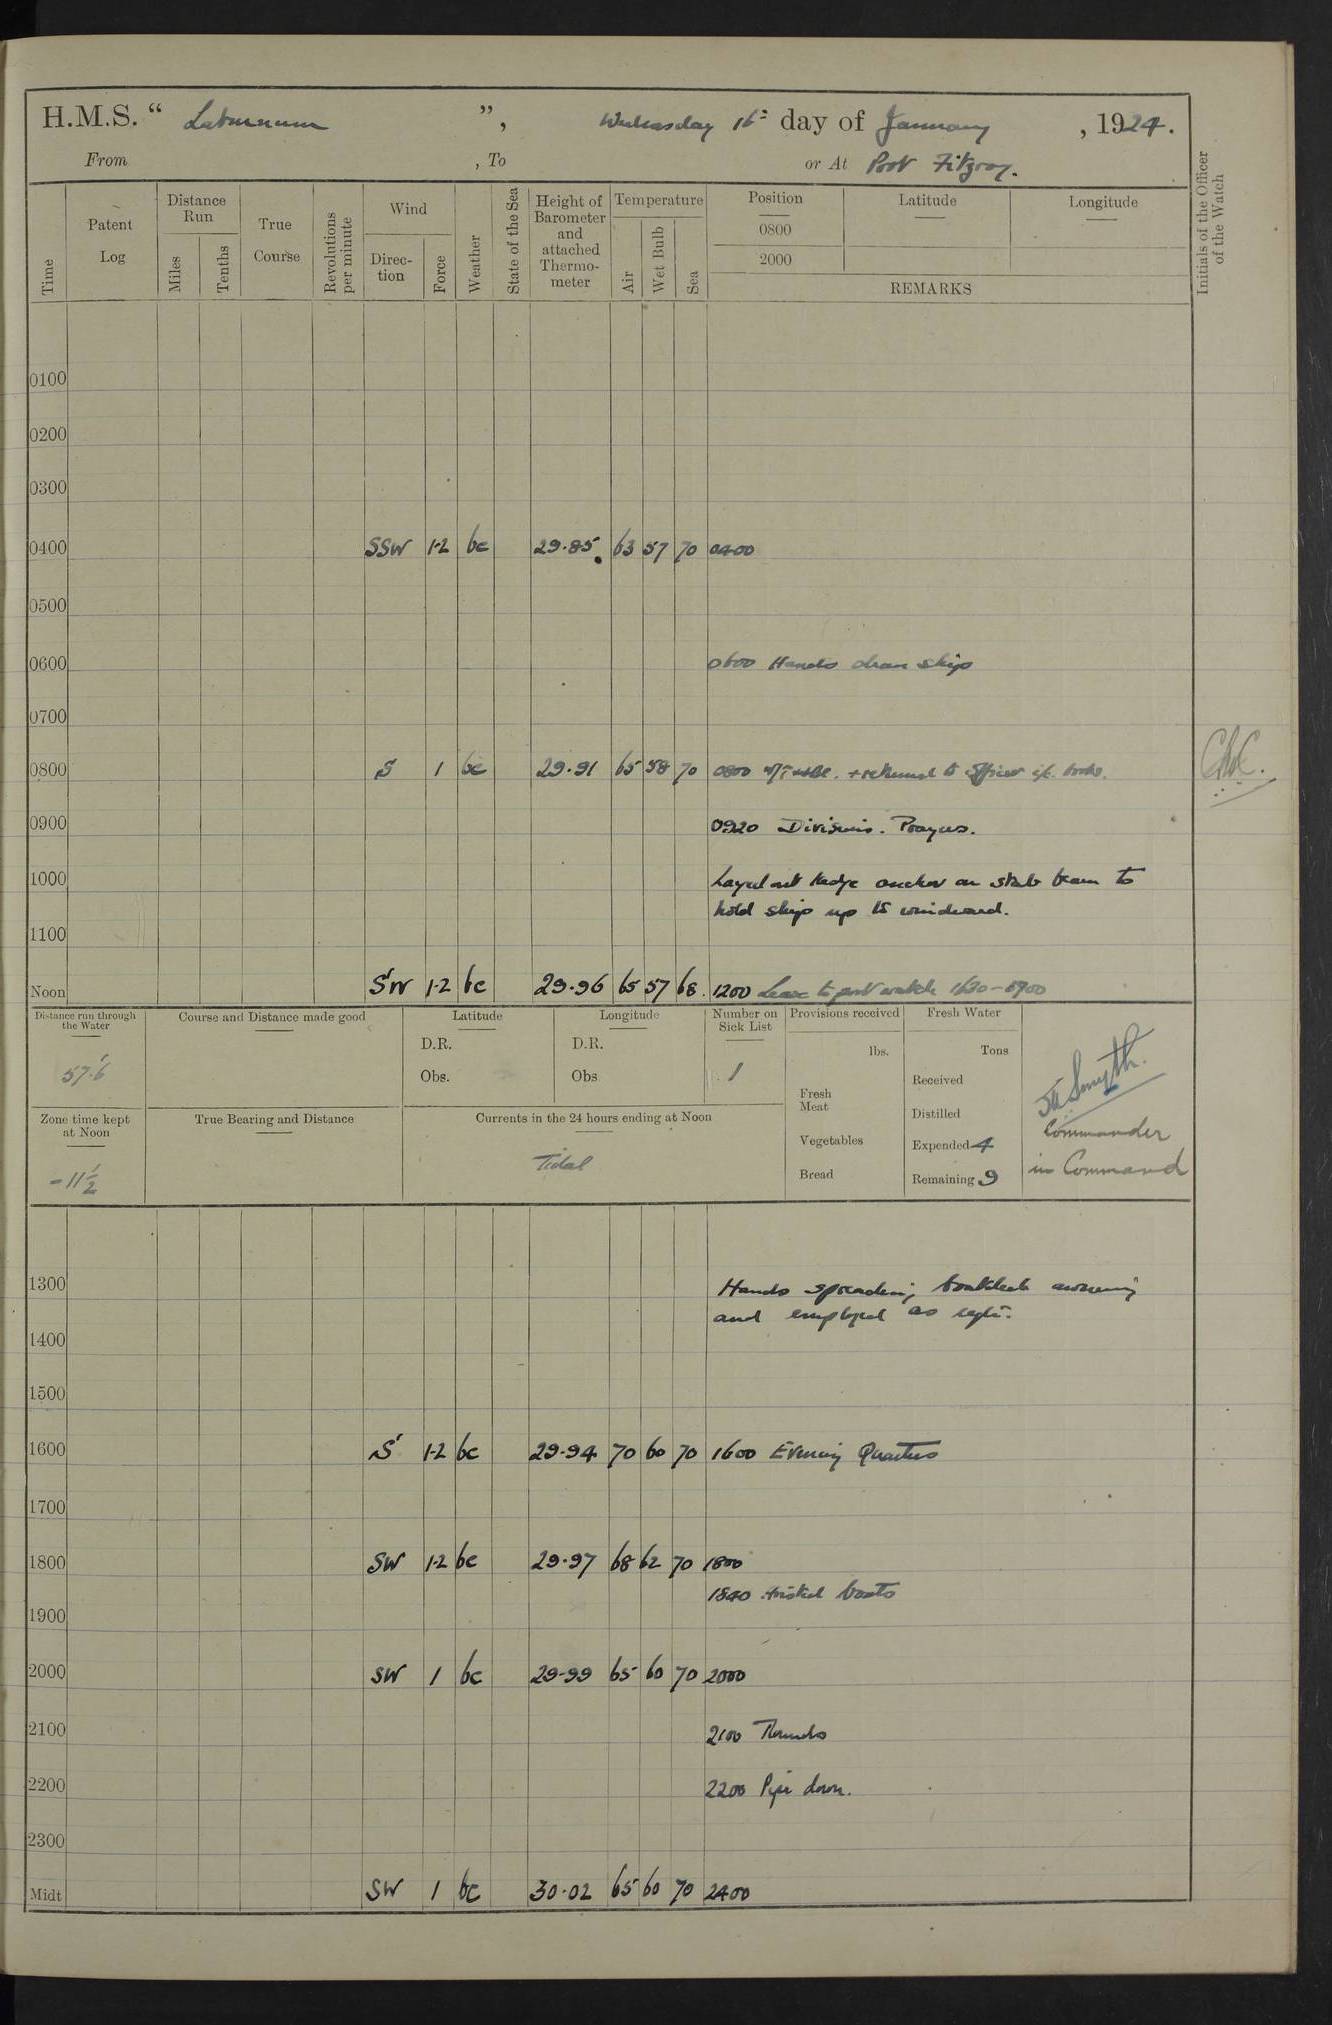 H.M.S. “ Laburnum ”, Wednesday 16th day of January, 1924.
From , To or At Port Fitzroy.
Time
Patent Log
Distance Run
Miles
Tenths
True Course
Revolutions per minute
Wind
Direction
Force
Weather
State of the Sea
Height of Barometer and attached Thermometer
Temperature
Air
Wet Bulb
Sea
Position
0800
2000
Latitude
Longitude
REMARKS
Initials of the Officer of the Watch
0100
0200
0300
0400 SSW 1-2 bc 29.85 63 57 70 0400
0500
0600 0600 Hands clean ship
0700
0800 S 1 bc 29.91 65 58 70 0800 + returned to officer i/c books.
0900 0920 Divisions. Prayers.
1000 Layed out kedge anchor on stab beam to
hold ship up to windward.
1100
Noon SW 1-2 bc 29.96 65 57 68. 1200 Leave to port watch 1630-0700
Distance run through the Water
57.6
Course and Distance made good
Latitude
D.R.
Obs.
Longitude
D.R.
Obs
Number on Sick List
1
Provisions received
lbs.
Fresh Meat
Vegetables
Bread
Fresh Water
Tons
Received
Distilled
Expended 4
Remaining 9
Smyth.
Commander
in Command
Zone time kept at Noon
-11½
True Bearing and Distance
Currents in the 24 hours ending at Noon
Tidal
1300 Hands spreading awning
and employed as reqte.
1400
1500
1600 S 1-2 bc 29.94 70 60 70 1600 Evening Quarters
1700
1800 SW 1-2 bc 29.97 68 62 70 1800
1840 Hoisted boats
1900
2000 SW 1 bc 29.99 65 60 70 2000
2100 2100 Rounds
2200 2200 Pipe down.
2300
Midt SW 1 bc 30.02 65 60 70 2400